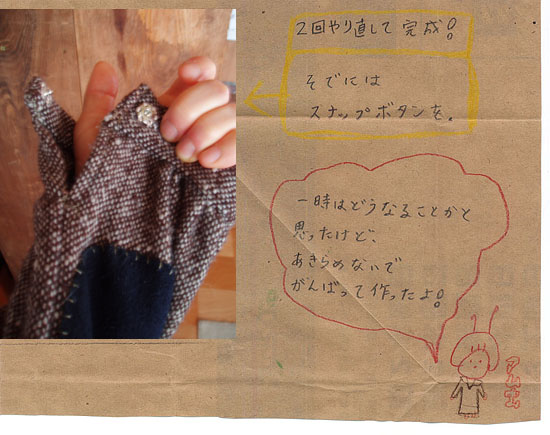 2回やり直して完成!
そでには
スナップボタンを。
一時はどうなることかと
思ったけど、
あきらめないで
がんばって作ったよ!